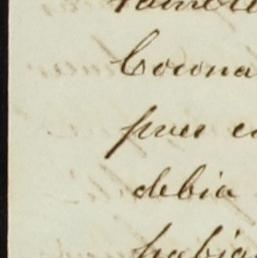 Corona
pues e
debia
habia